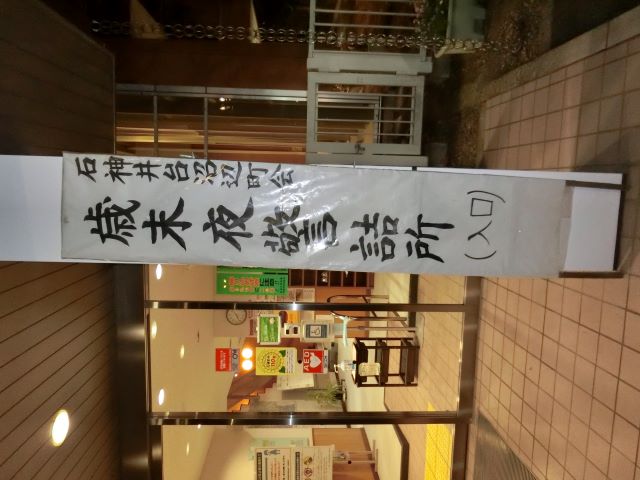 石神井台沼辺町会
歳末夜警詰所
(入口)
AED